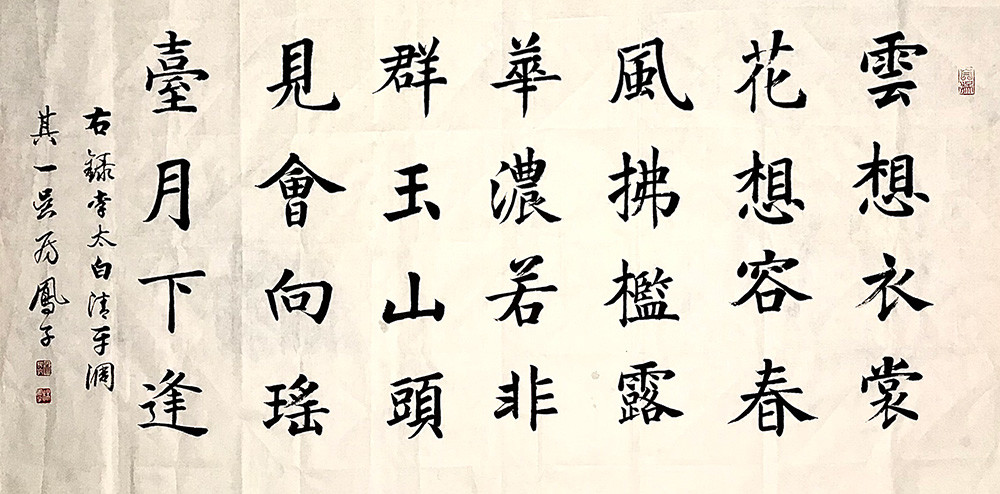 雲想衣裳
花想容春
風拂檻露
華濃若非
群玉山頭
見會向瑤
臺月下逢
右錄李太白清平調
其一吳房鳳子